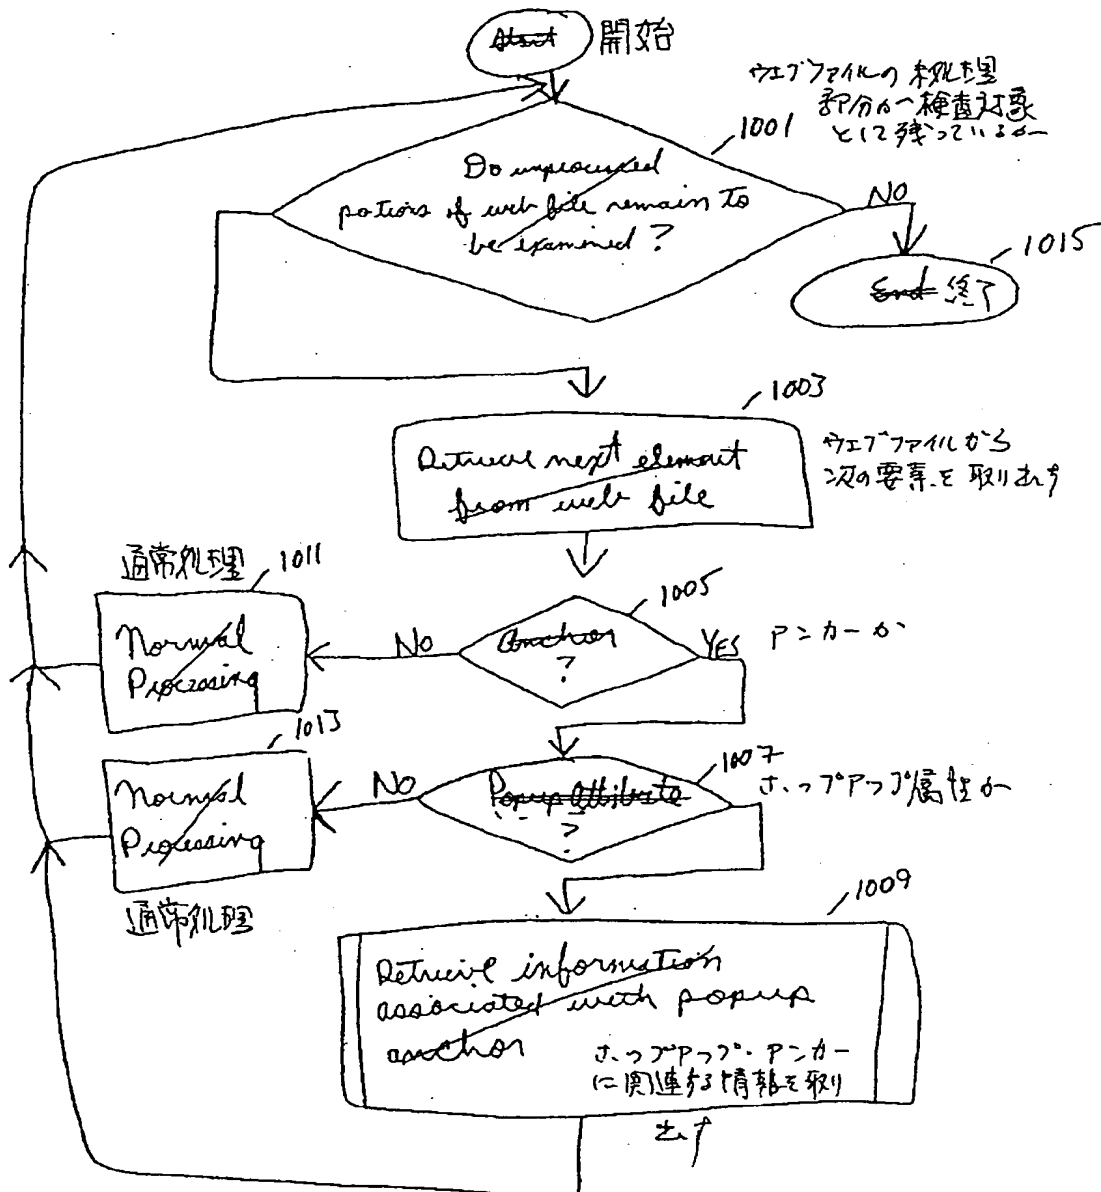 Start 開始
ウェブファイルの未処理
部分が検査対象
として残っているか
1001
Do unprocessed
potions of web file remain to
be examined ?
NO
1015
End 終了
1003
Retrieve next element
from web file
ウェブファイルから
次の要素を取り出す
通常処理
1011
Normal
Processing
1005
Anchor
?
NO
YES
アンカーか
1013
Normal
Processing
通常処理
1007
Popup Attribute
?
NO
ポップアップ属性か
1009
Retrieve information
associated with popup
anchor
ポップアップ・アンカー
に関連する情報を取り
出す